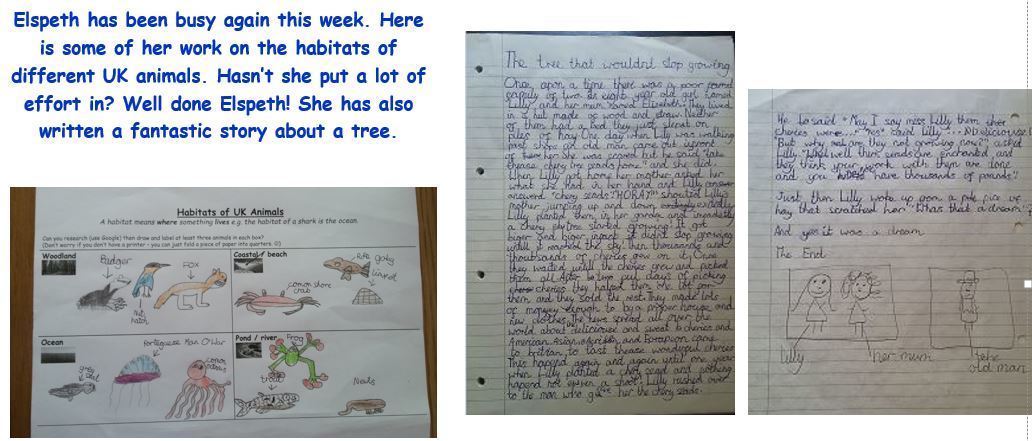 Elspeth has been busy again this week. Here
is some of her work on the habitats of
different UK animals. Hasn't she put a lot of
effort in? Well done Elspeth! She has also
written a fantastic story about a tree.
Habitats of UK Animals
A habitat means where something lives e.g. the habitat of a shark is the ocean.
Can you research (use Google) then draw and label at least three animals in each box?
(Don't worry if you don't have a printer - you can just fold a piece of paper into quarters. ☺)
Woodland
Badger
Fox
Nut hatch
Coastal / beach
Rock goby
common shore crab
limpet
Ocean
grey seal
Portuguese Man O'War
Pond / river
Frog
trout
The tree that wouldnt stop growing
Once upon a time there was a poor
family of two an eight year old girl named
Lilly and her mum named Elizabeth. They lived
in a hut made of wood and straw. Neither
of them had a bed they just slept on
piles of hay. One day when Lilly was walking
past shops an old man came out upfront
of her. She was scared but he said "take
home" and she did.
When Lilly got home her mother asked her
what she had in her hand and Lilly
answered "chery seeds" "HORAY!" shouted Lilly's
mother jumping up and down
Lilly planted them in her garden and
a chery started growing! It got
biger and biger, it didn't stop growing
untill it reached the sky! then thousands and
of cheries grew on it. Once
they waited untill the cheries grew and picked
them all. After days of picking
cheries they helped them
them and they sold the rest. They made lots
of money enough to by a proper house and
new clothes. The news spread all over the
world about and sweat cherries and
American, Asian, and European came
to britain to tast these wonderful cheries
This hapend again and again until one year
when Lilly planted a chery seed and nothing
hapend not even a shoot. Lilly rushed over
to the man who her the chery seeds.
He said "May I say miss Lilly them their
cheries were..." "Yes" said Lilly "...
"But why are they not growing now?" asked
Lilly. "Well them seeds are enchanted and
they think your work with them are done
and you have thousands of pounds".
Just then Lilly woke up from a pice of
hay that scratched her was that a dream?
And yes it was a dream.
The End
Lilly
her mum
the
old man